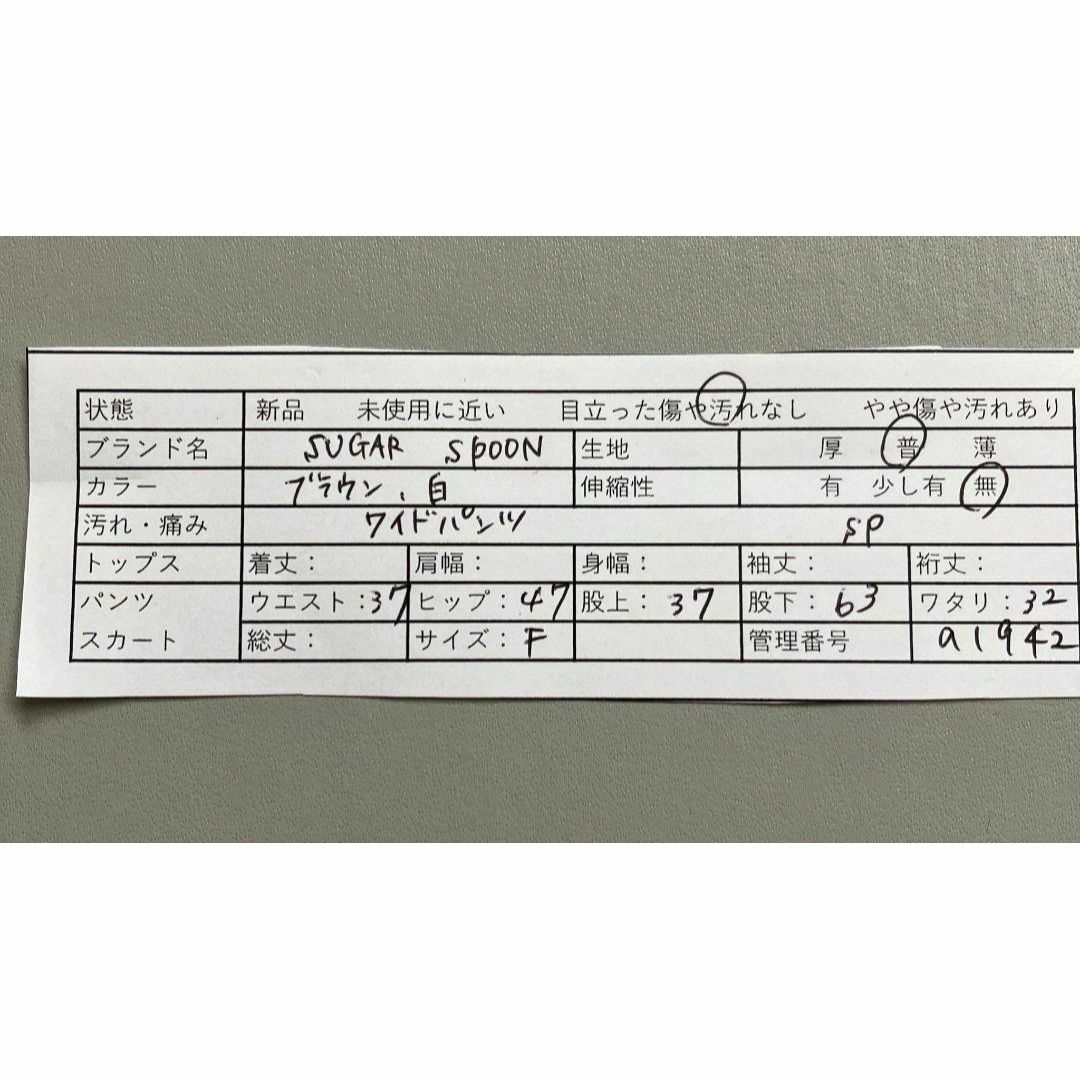 状態 新品 未使用に近い 目立った傷や汚れなし やや傷や汚れあり
ブランド名 SUGAR SPOON 生地 厚 普 薄
カラー ブラウン、白 伸縮性 有 少し有 無
汚れ・痛み ワイドパンツ sp
トップス 着丈: 肩幅: 身幅: 袖丈: 裄丈:
パンツ ウエスト:37 ヒップ:47 股上:37 股下:63 ワタリ:32
スカート 総丈: サイズ:F 管理番号 a1942